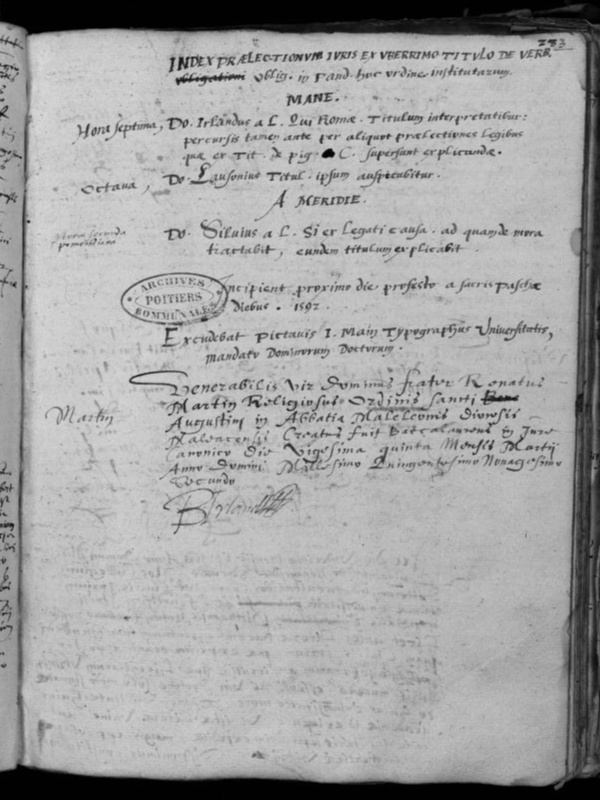 283
INDEX PRÆLECTIONVM IVRIS EX VBERRIMO TITVLO DE VERB.
obligationi oblig. in Pand. hoc ordine institutarum.
MANE.
Hora septima, Do. Irlandus a L. Qui Romæ. Titulum interpretatibur:
percursis tamen ante per aliquot prælectiones legibus
quæ ex Tit. de pig. C. supersunt explicandæ.
Octava, Do. Lausonius Titul. ipsum auspicabitur.
A MERIDIE.
Hora secunda pomeridiana Do. Silvius a L. Si ex legati causa. ad quamde mora
tractabit, eundem titulum explicabit.
Incipient proximo die profesto a sacris Paschæ
Diebus. 1592.
ARCHIVES
POITIERS
COMMUNALES
Excudebat Pictavis I. Main Typographus Universitatis,
mandato Dominorum Doctorum.
Venerabilis vir dominus frater Renatus
Martin Martin Religiosus Ordinis sancti
Augustini in Abbatia Maleleonis diocesis
Maleacensis Creatus fuit Baccalaureus in Jure
Canonico die Vigesima quinta Mensis Martii
Anno Domini Millesimo Quingentesimo Nonagesimo
Secundo